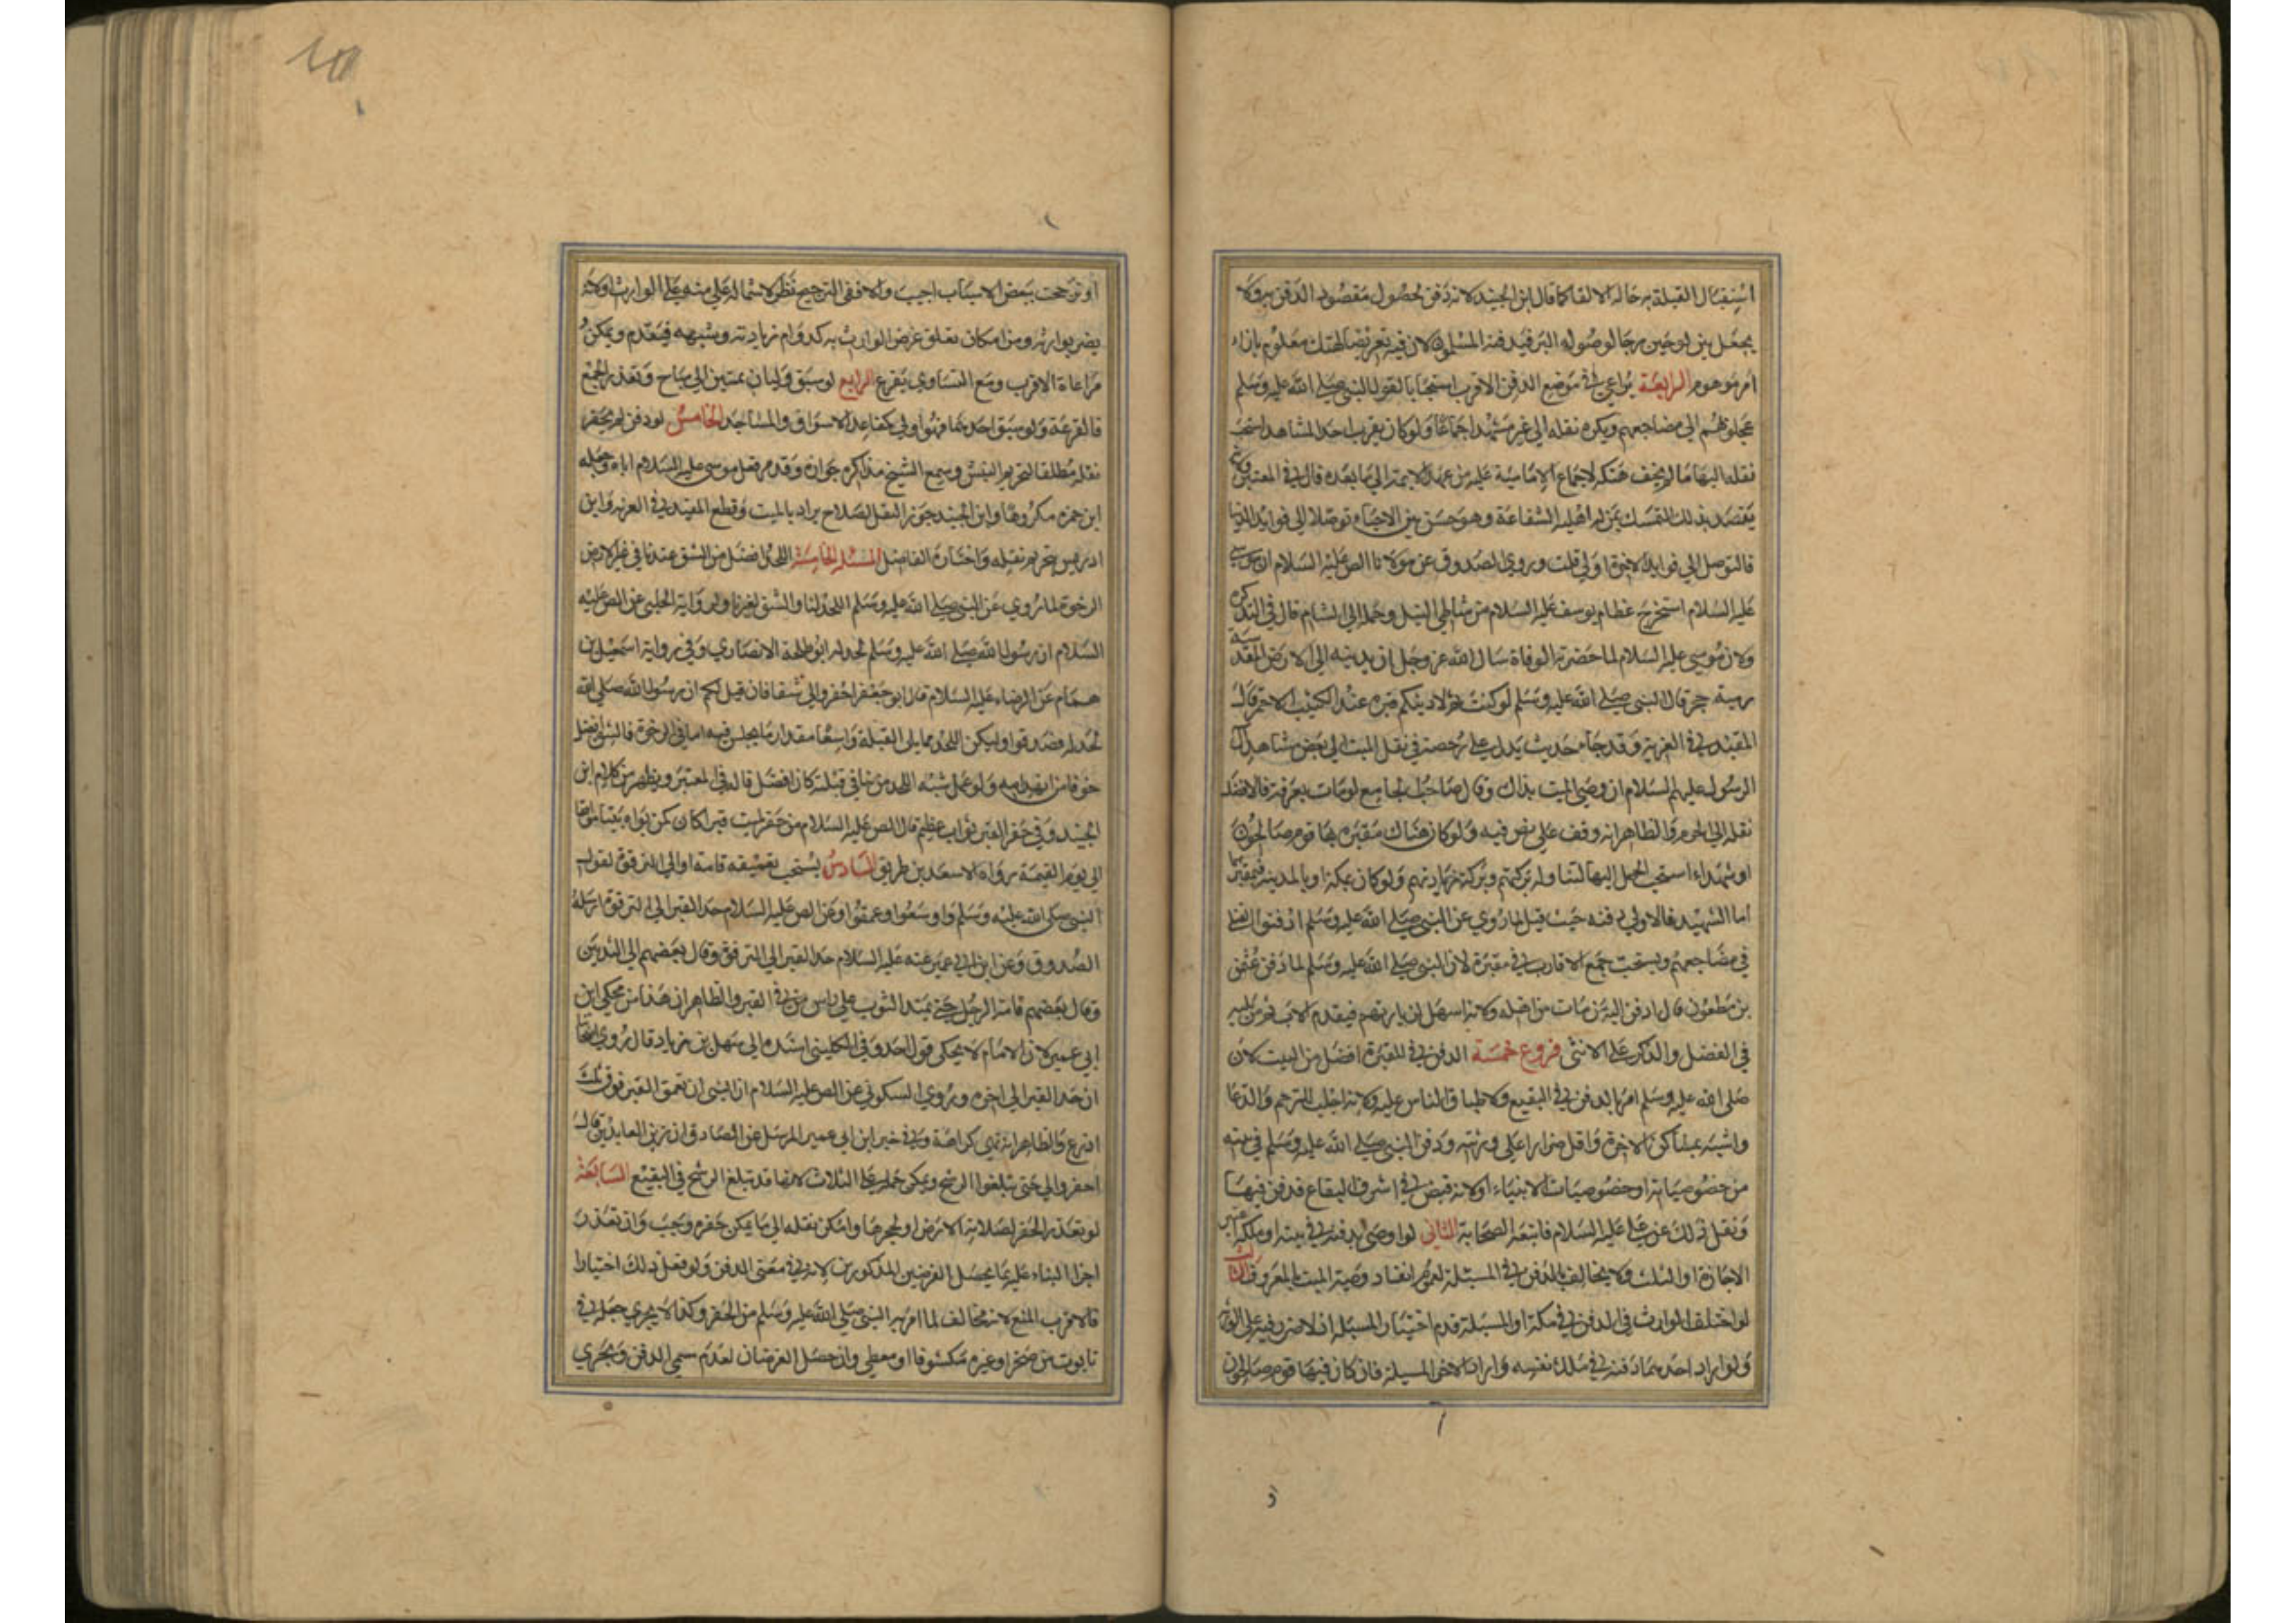 استقبال القبلة به حالة الالقا كما قال ابن الجنيد لانه دفن لحصول مقصود الدفن به ولا
يجعل بين لوحين رجا لوصوله البر فيدفنه المسلمون لان فيه تعريضا لهتك معلوم بازاء
امر موهوم الرابعة يراعى في موضع الدفن الاقرب استحبابا لقول النبي صلى الله عليه وسلم
عجلوهم الى مضاجعهم ويكره نقله الى غير مشهد اجماعا ولو كان بقرب احد المشاهد استحب
نقله اليها ما لم يخف هتكه لاجماع الامامية عليه من عهد الائمة الى ما بعده قال في المعتبر
يقصد بذلك التمسك بمن له اهلية الشفاعة وهو حسن بين الاحياء توصلا الى فوايد الدنيا
فالتوصل الى فوايد الاخرة اولى قلت وروى الصدوق عن مولانا الص عليه السلام ان موسى
عليه السلام استخرج عظام يوسف عليه السلام من شاطى النيل وحمله الى الشام قال في التذكرة
ولان موسى عليه السلام لما حضرته الوفاة سال الله عز وجل ان يدنيه الى الارض المقدسة
رمية حجر قال النبي صلى الله عليه وسلم لو كنت ثم لاريتكم قبره عند الكثيب الاحمر قال
المفيد في العزية وقد جاء حديث يدل على رخصة في نقل الميت الى بعض مشاهد ال
الرسول عليهم السلام ان وصى الميت بذلك وقال صاحب الجامع لو مات بعرفة فالافضل
نقله الى الحرم والظاهر انه وقف على نص فيه ولو كان هناك مقبرة بها قوم صالحون
او شهداء استحب الحمل اليها لتناوله بركتهم وبركة زيارتهم ولو كان بمكة او بالمدينة فبمقبرتيهما
اما الشهيد فالاولى دفنه حيث قتل لما روي عن النبي صلى الله عليه وسلم ادفنوا القتلى
في مضاجعهم ويستحب جمع الاقارب في مقبرة لان النبي صلى الله عليه وسلم لما دفن عثمن
بن مظعون قال ادفن اليه من مات من اهله ولانه اسهل لزيارتهم فيقدم الاب ثم من يليه
في الفضل والذكر على الانثى فروع خمسة الدفن في المقبرة افضل من البيت لان
صلى الله عليه وسلم امر بالدفن في البقيع ولاطباق الناس عليه ولانه اجلب للترحم والدعا
واشبه بمساكن الاخرة واقل ضررا على ورثته ودفن النبي صلى الله عليه وسلم في بيته
من خصوصياته او خصوصيات الانبياء اولانه قبض في اشرف البقاع فدفن فيها
ونقل ذلك عن علي عليه السلام فاتبعه الصحابة الثاني لو اوصى بدفنه في بيته او ملكه اعتبر
الاجازة او الثلث ولا يخالف بالدفن في المسبلة لعموم انفاد وصية الميت بالمعروف الثالث
لو اختلف الوارث في الدفن في ملكه او المسبلة قدم اختيار المسبلة اذ لا ضرر فيه على الوارث
ولو اراد احدهما دفنه في ملك نفسه واراد الاخر المسبلة فان كان فيها قوم صالحون
او ترجحت ببعض الاسباب اجيب والا ففي الترجيح نظر لاشتماله على منة على الوارث او لانه
يضر بوارثه ومن امكان تعلق غرض الوارث به كدوام زيارته وشبهه فيقدم ويمكن
مراعاة الاقرب ومع التساوي يقرع الرابع لو سبق وليان بميتين الى مباح وتعذر الجمع
فالقرعة ولو سبق احدهما فهو اولى كمقاعد الاسواق والمساجد الخامس لو دفن لم يجز
نقله مطلقا لتحريم النبش وسمع الشيخ مذاكرة جوازه وقدم فعل موسى عليه السلام اياه وجعله
ابن حمزه مكروها وابن الجنيد جوز النقل لصلاح يراد بالميت وقطع المفيد في العزية وابن
ادريس بتحريم نقله واختاره الفاضل المسئلة الخامسة اللحد افضل من الشق عندنا في غير الارض
الرخوة لما روي عن النبي صلى الله عليه وسلم اللحد لنا والشق لغيرنا ولرواية الحلبي عن الص عليه
السلام ان رسول الله صلى الله عليه وسلم لحد له ابو طلحة الانصاري وفي رواية اسمعيل بن
همام عن الرضاء عليه السلام قال ابو جعفر احفروا لي شقا فان قيل لكم ان رسول الله صلى الله
لحد له فصدقوا وليكن اللحد مما يلي القبلة واسعا مقدار ما يجلس فيه اما في الرخوة فالشق افضل
خوفا من انهدامه ولو عمل شبه اللحد من بناء في قبلته كان افضل قاله في المعتبر ويظهر من كلام ابن
الجنيد وفي حفر القبر ثواب عظيم قال الص عليه السلام من حفر لميت قبرا كان كمن بواه بيتا موافقا
الى يوم القيمة رواه الا سعد بن طريق السادس يستحب تعميقه قامة او الى الترقوة لقول
النبي صلى الله عليه وسلم واوسعوا وعمقوا وعن الص عليه السلام حد القبر الى الترقوة ارسله
الصدوق وعن ابن ابي عمير عنه عليه السلام حد القبر الى الترقوة وقال بعضهم الى الثديين
وقال بعضهم قامة الرجل حتى يمتد الثوب على راس من في القبر والظاهر ان هذا من محكي ابن
ابي عمير لان الامام لا يحكي قول احد وفي الكليني اسنده الى سهل بن زياد قال روى اصحابنا
ان حد القبر الى اخره وروى السكوني عن الص عليه السلام ان النبي ان تعمق القبر فوق ثلث
اذرع والظاهر انه نهي كراهة وفي خبر ابن ابي عمير المرسل عن الصادق ان زين العابدين قال
احفروا لي حتى تبلغوا الرشح ويمكن حمله على الثلاث لانها قد تبلغ الرشح في البقيع السابعة
لو تعذر الحفر لصلابة الارض او لحجرها وامكن نقله الى ما يمكن حفره وجب وان تعذر
اجزا البناء عليه بما يحصل الغرضين المذكورين لانه في معنى الدفن ولو فعل ذلك اختيارا
فالاقرب المنع لانه مخالف لما امر به النبي صلى الله عليه وسلم من الحفر وكذا لا يجزي جعله في
تابوت من صخر او غيره مكشوفا او مغطى وان حصل الغرضان لعدم سمي الدفن ويجزي